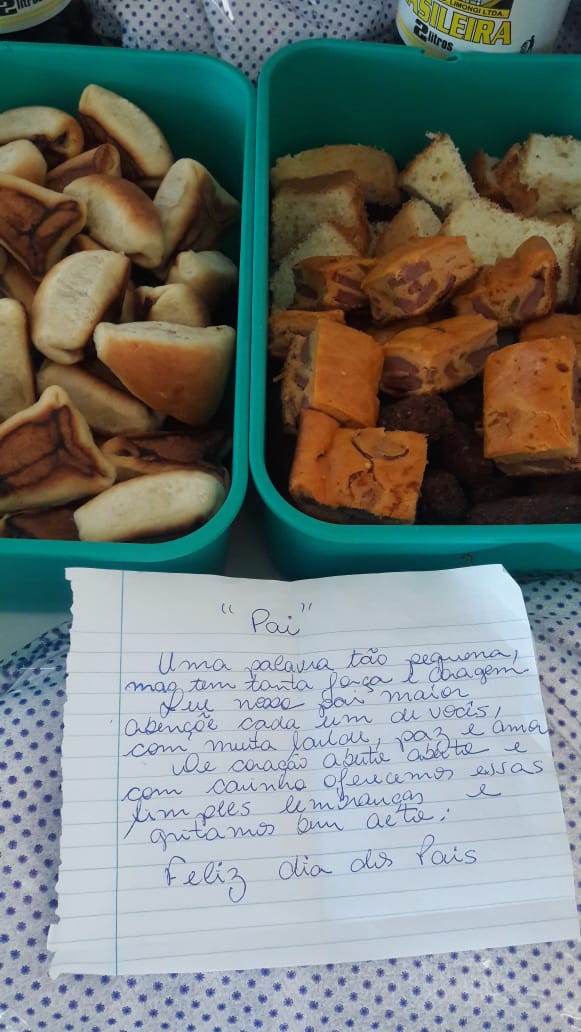 2 litros
LIMONGI LTDA.
ASILEIRA
2 litros
"Pai"
Uma palavra tão pequena,
mas tem tanta força e coragem
Que nosso pai maior
abençõe cada um de vocês,
com muita saúde, paz e amor
De coração aberto e
com carinho oferecemos essas
simples lembranças e
gritamos bem alto:
Feliz dia dos Pais